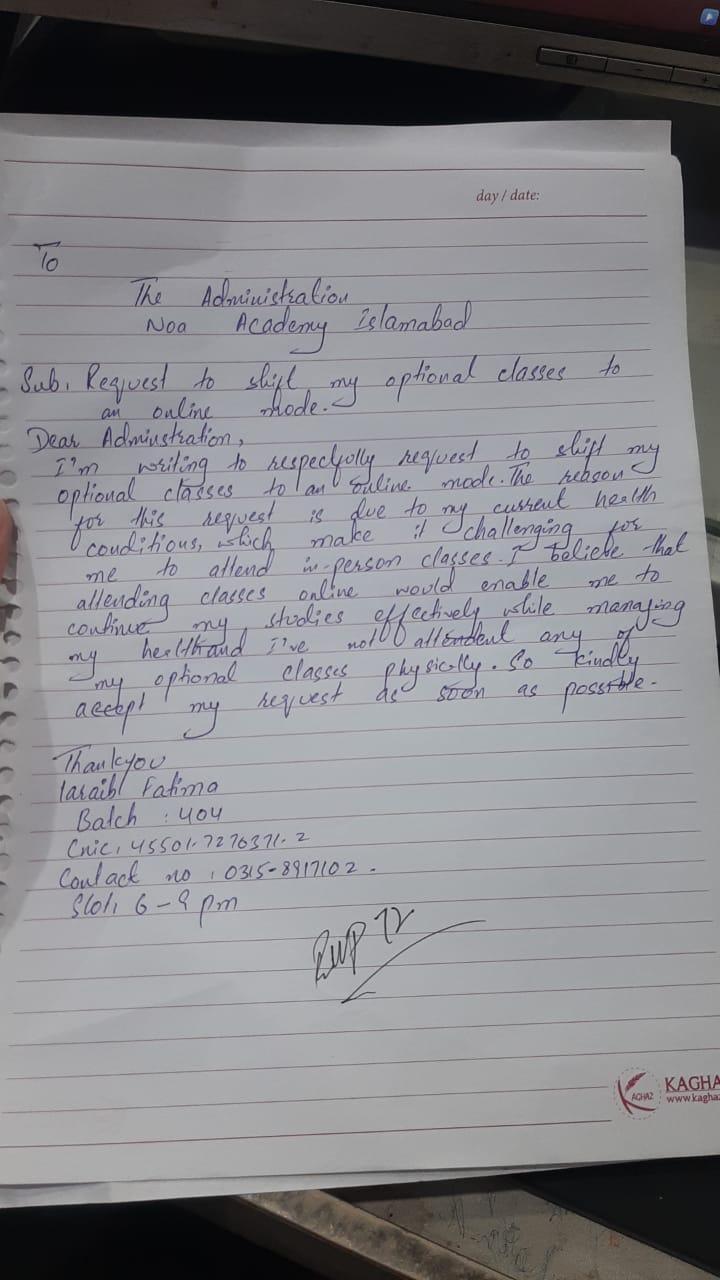 day / date:
To
The Administration
Noa Academy Islamabad
Sub. Request to shift my optional classes to
an online mode.
Dear Adminustration,
I'm writing to respectfully request to shift my
optional classes to an online mode. The reason
for this request is due to my current health
conditions, which make it challenging for
me to attend in-person classes. I believe that
attending classes online would enable me to
continue my studies effectively while managing
my health and I've not attendent any of
my optional classes physically. So kindly
accept my request as soon as possible.
Thankyou
Laraib Fatima
Batch : 404
Cnic: 45501-7276371-2
Contact no : 0315-8917102.
Slot: 6-9 pm
KAGHA
AGHAZ
www.kaghaz